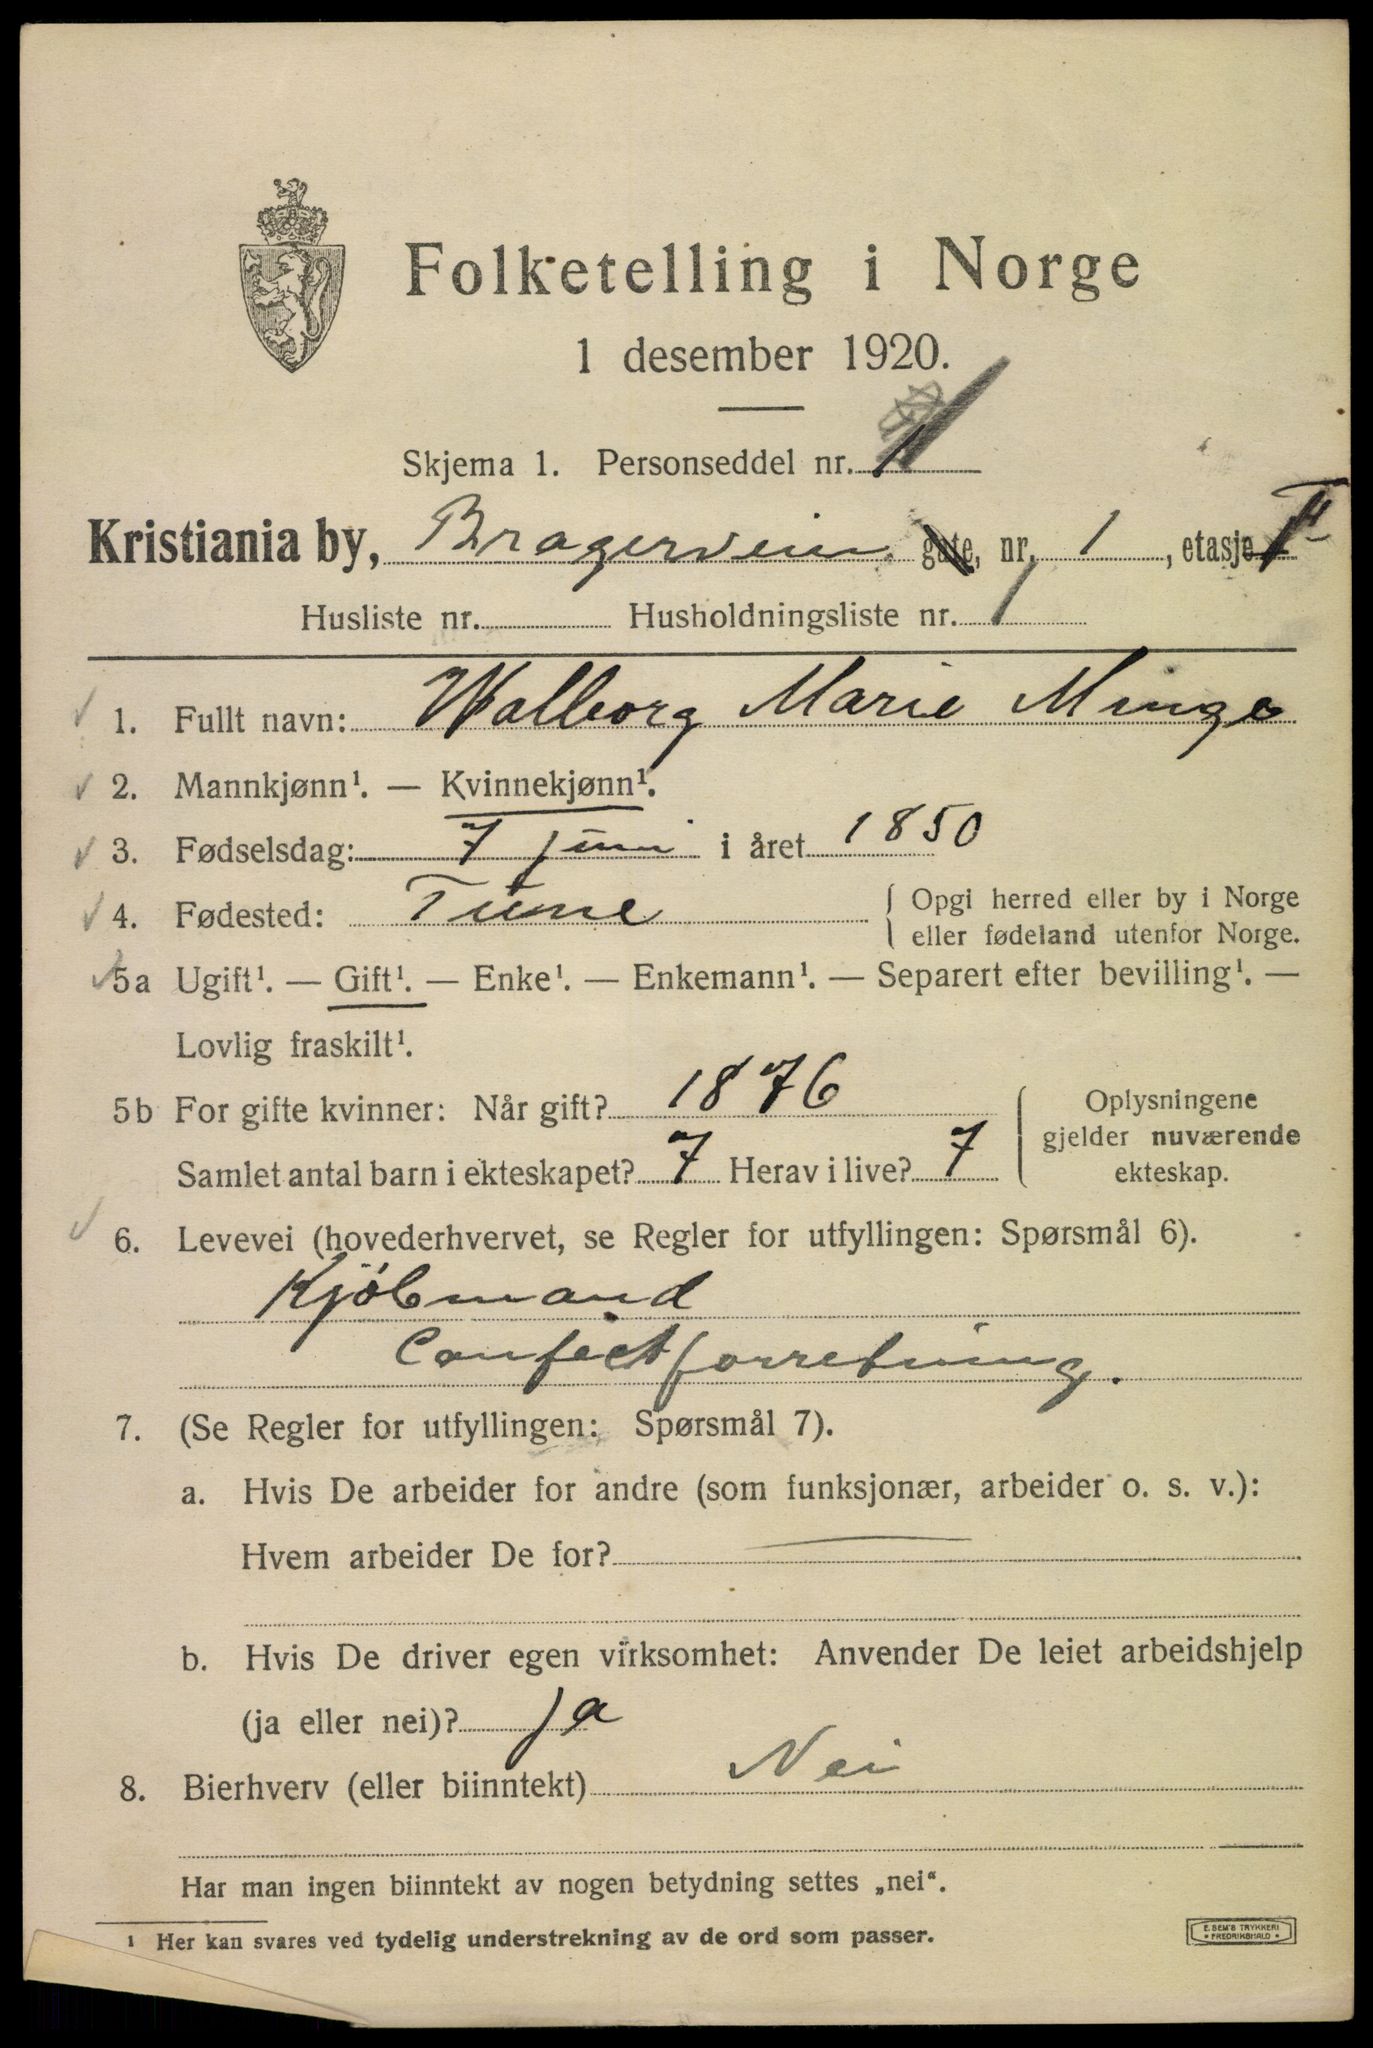 Folketelling i Norge
1 desember 1920.
Skjema 1. Personseddel nr. 1
Kristiania by, Bragerveien gate, nr. 1, etasje II
Husliste nr. Husholdningsliste nr. 1
1. Fullt navn: Walborg Marie Minge
2. Mannkjønn¹. — Kvinnekjønn¹.
3. Fødselsdag: 7 Juni i året 1850
4. Fødested: Tune { Opgi herred eller by i Norge
eller fødeland utenfor Norge.
5a Ugift¹. — Gift¹. — Enke¹. — Enkemann¹. — Separert efter bevilling¹. —
Lovlig fraskilt¹.
5b For gifte kvinner: Når gift? 1876
Samlet antal barn i ekteskapet? 7 Herav i live? 7
Oplysningene
gjelder nuværende
ekteskap.
6. Levevei (hovederhvervet, se Regler for utfyllingen: Spørsmål 6).
Kjöbmand
Confectforretning.
7. (Se Regler for utfyllingen: Spørsmål 7).
a. Hvis De arbeider for andre (som funksjonær, arbeider o. s. v.):
Hvem arbeider De for? —
b. Hvis De driver egen virksomhet: Anvender De leiet arbeidshjelp
(ja eller nei)? ja
8. Bierhverv (eller biinntekt) Nei
Har man ingen biinntekt av nogen betydning settes „nei“.
¹ Her kan svares ved tydelig understrekning av de ord som passer.
E. SEM'S TRYKKERI
* FREDRIKSHALD *